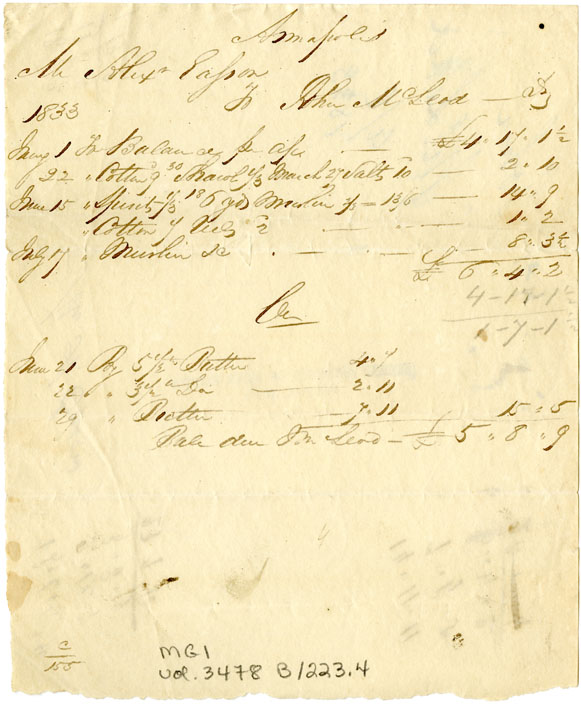 Annapolis
Mr Alexr Easson
To Athur McLeod — Dr
1833
May 1 To Balance pr a/c — £4 " 17 " 1½
22 " Cotton 9d March 27 Salts 10 — 2 " 10
June 15 " Spirits 1/3 6 yd Muslin — 13/6 — 14 " 9
" Cotton 1/2 — 1 " 2
July 17 " Muslin &c — 8 " 3½
£ 6 " 4 " 2
4-17-1
1-7-1
Cr
June 21 By 5½ lb Butter 4 " 7
22 " 3½ lb Do — 2 " 11
29 " Butter — 7 " 11 15 " 5
Bale due McLeod — £ 5 " 8 " 9
C
155
MG1
Vol. 3478 B/223.4